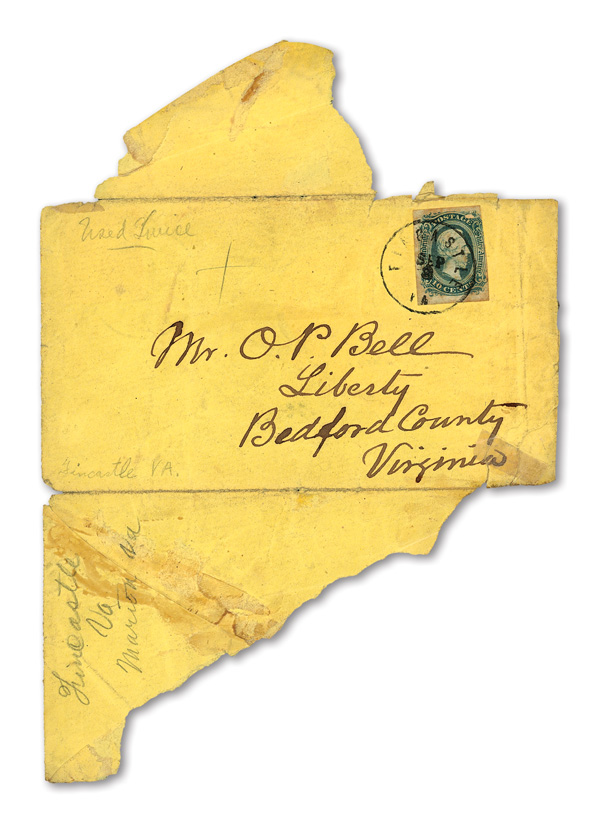 Used Twice
POSTAGE
TEN CENTS
SEP
VA
Mr. O. P. Bell
Liberty
Bedford County
Virginia
Fincastle VA.
Fincastle
Va
Marion Va